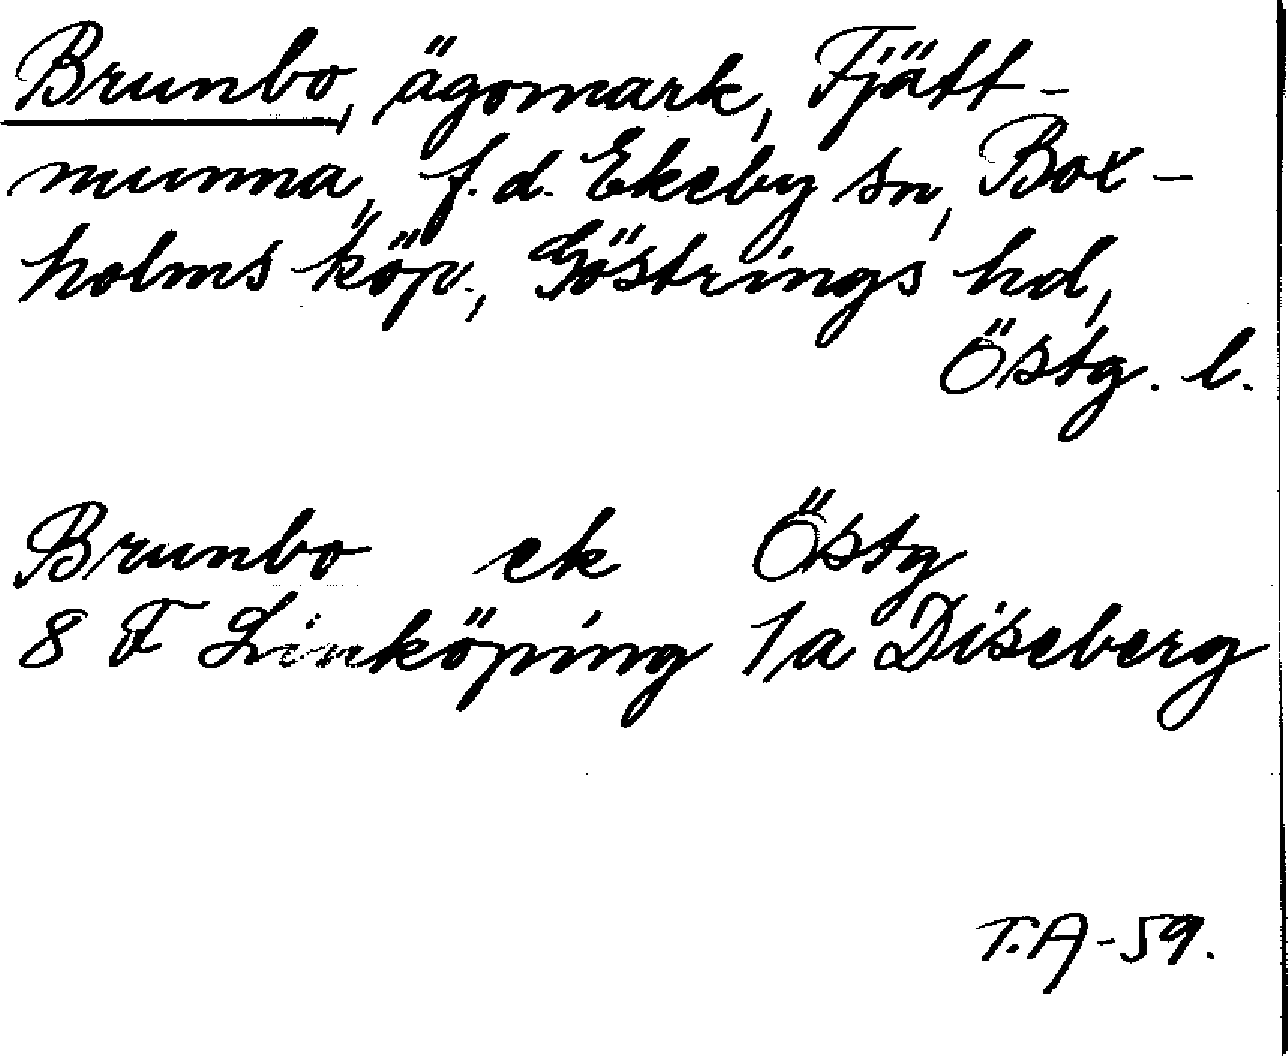 Brunbo, ägomark, Fjätt-
munna, f.d. Ekeby sn, Box-
holms köp., Göstrings hd,
Östg. l.
Brunbo ek Östg
8 F Linköping 1a Diseberg
T.A-59.